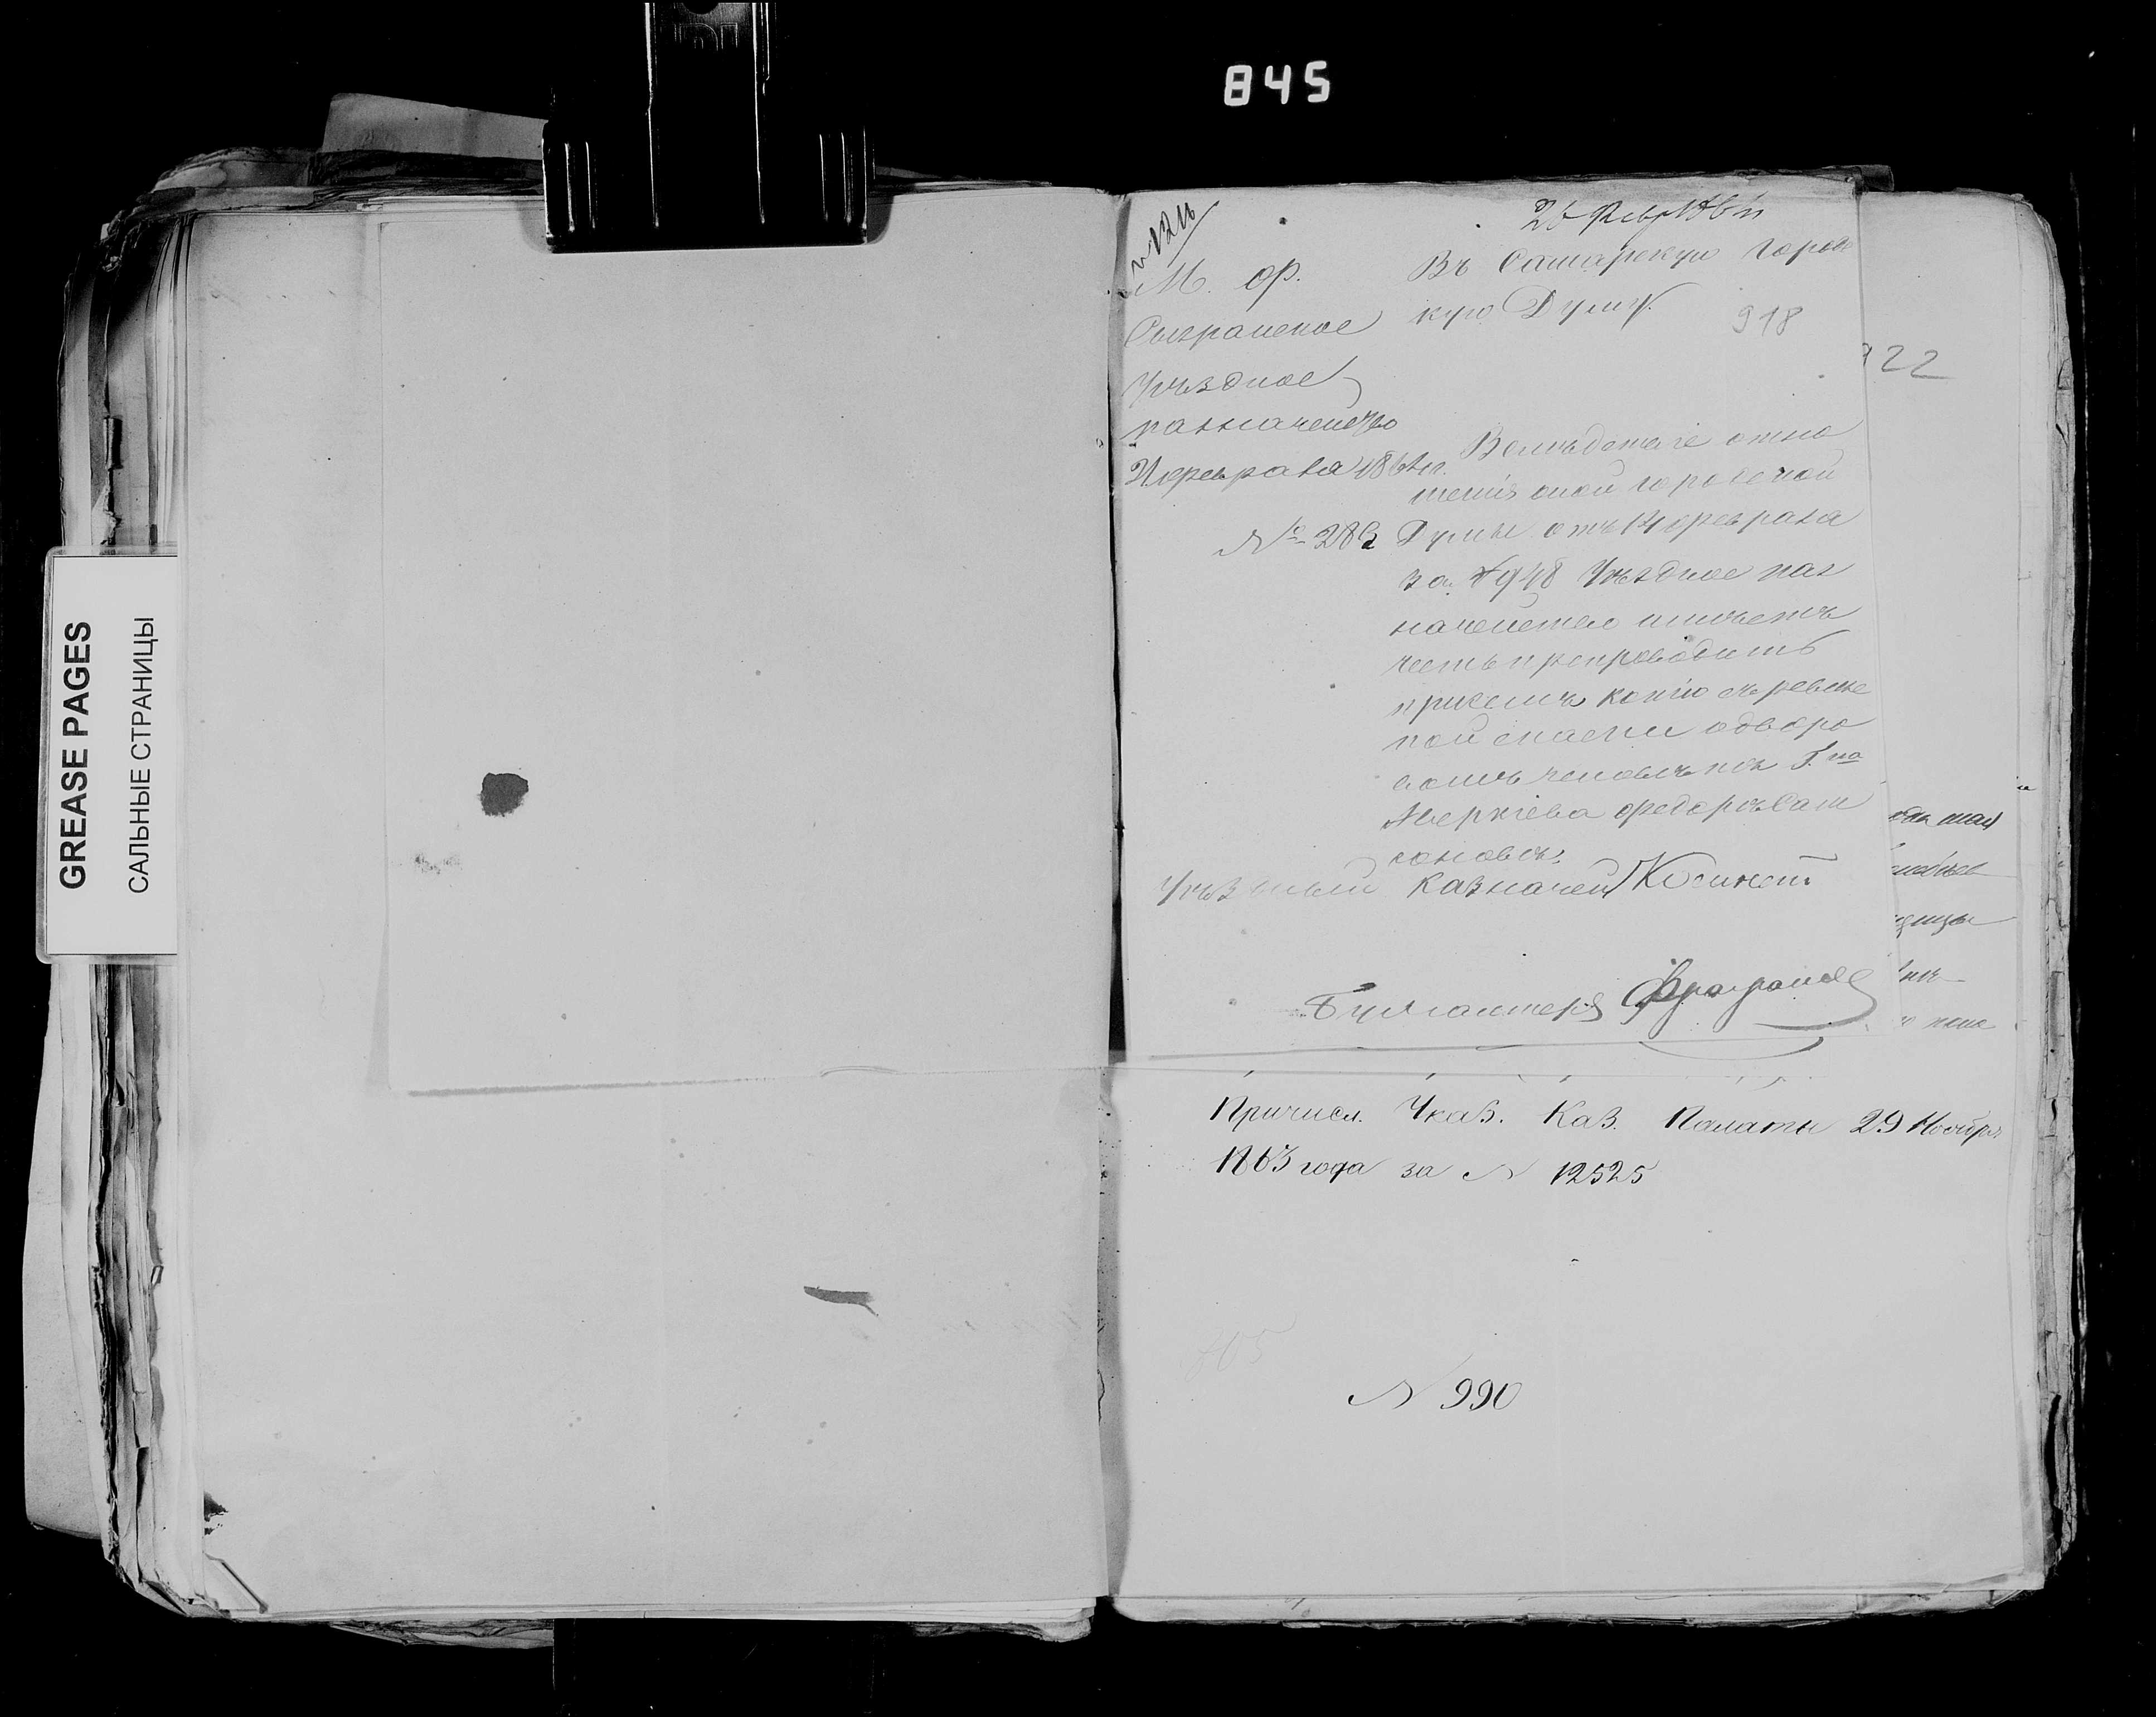 845
GREASE PAGES
САЛЬНЫЕ СТРАНИЦЫ
М. Ф.
Сызранское
Уѣздное
казначейство
февраля 1864 г.
№ 282
Въ Самарскую Городс
кую Думу.
918
922
Вслѣдствіе отно
шенія оной городской
Думы отъ 14 февраля
за № 948 Уѣздное каз
начейство имѣетъ
честь препроводить
присемъ копію съ ревиз
кой сказки одворо
вомъ человѣкѣ Г.на
Аверкіева Федорѣ Сам
соновѣ.
Уѣздный Казначей
Бухгалтеръ
Причисл. Указ. Каз. Палаты 29 Ноября
1863 года за № 12525
№ 990